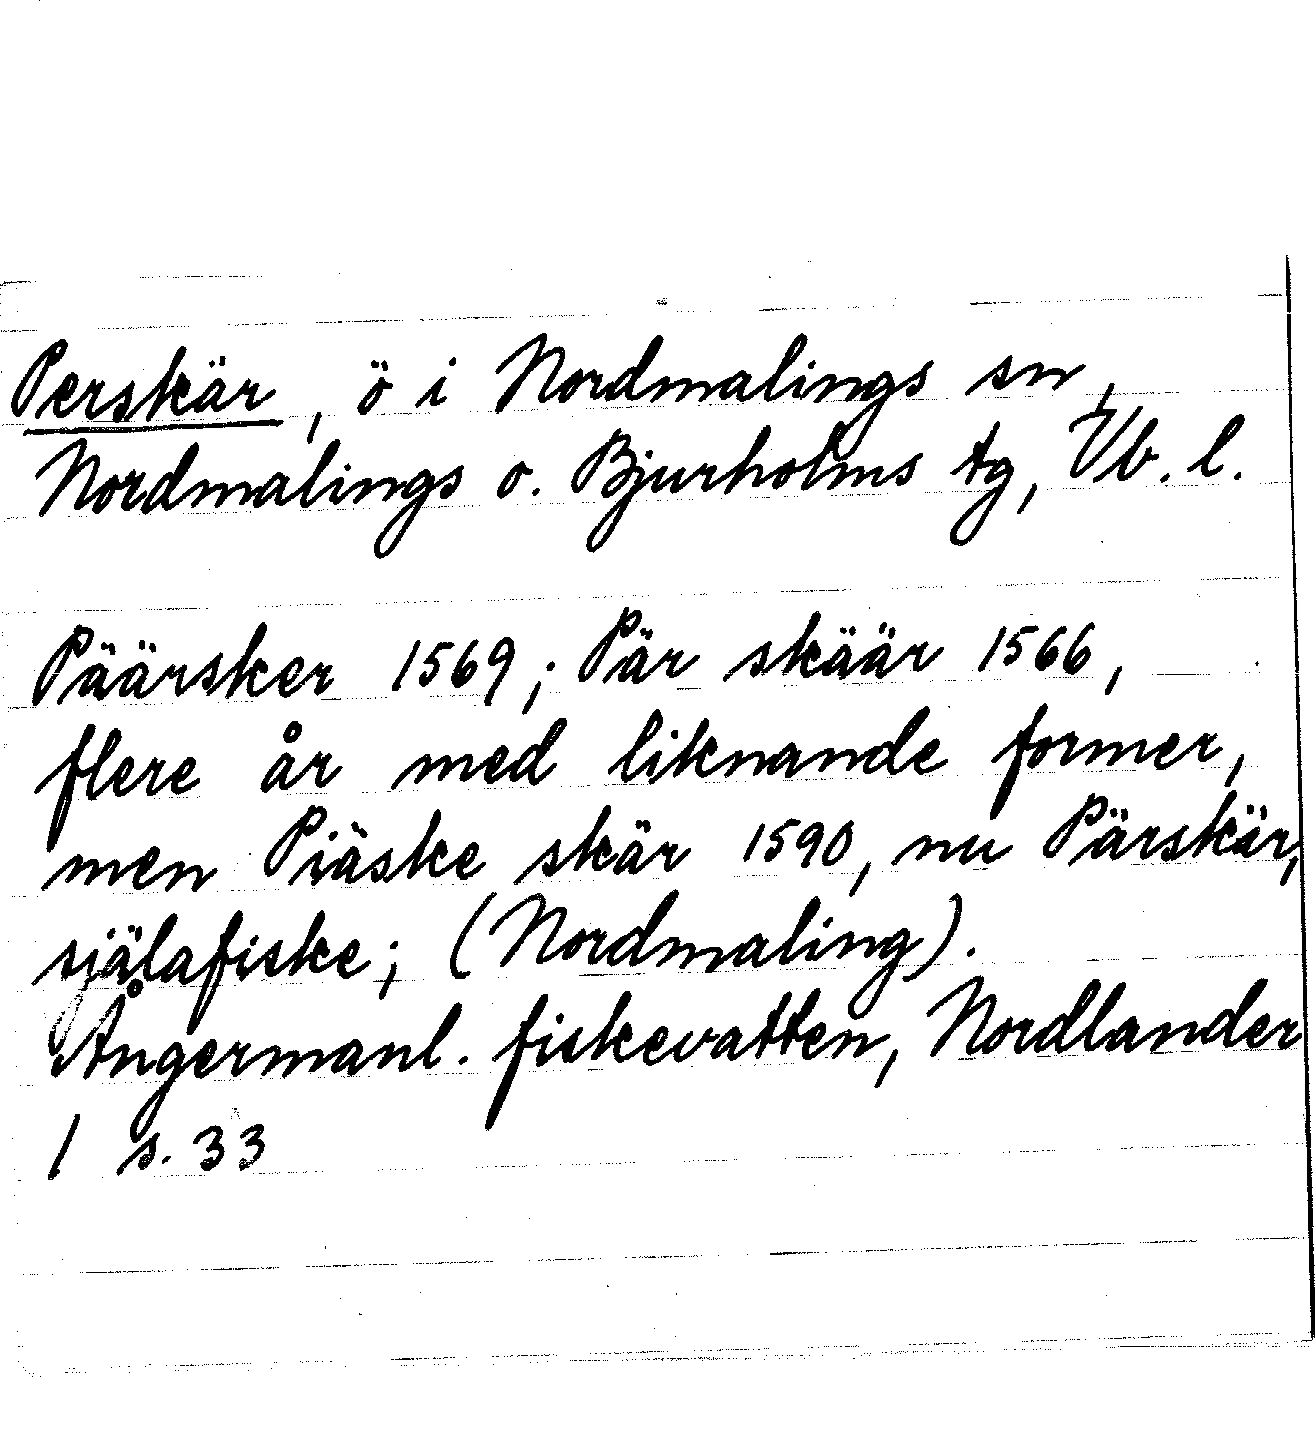 Perskär, ö i Nordmalings sn,
Nordmalings o. Bjurholms tg, Vb. l.
Päärsker 1569; Pär skäär 1566,
flere år med liknande former,
men Piäske skär 1590, nu Pärskär,
själafiske; (Nordmaling).
Ångermanl. fiskevatten, Nordlander
I s. 33